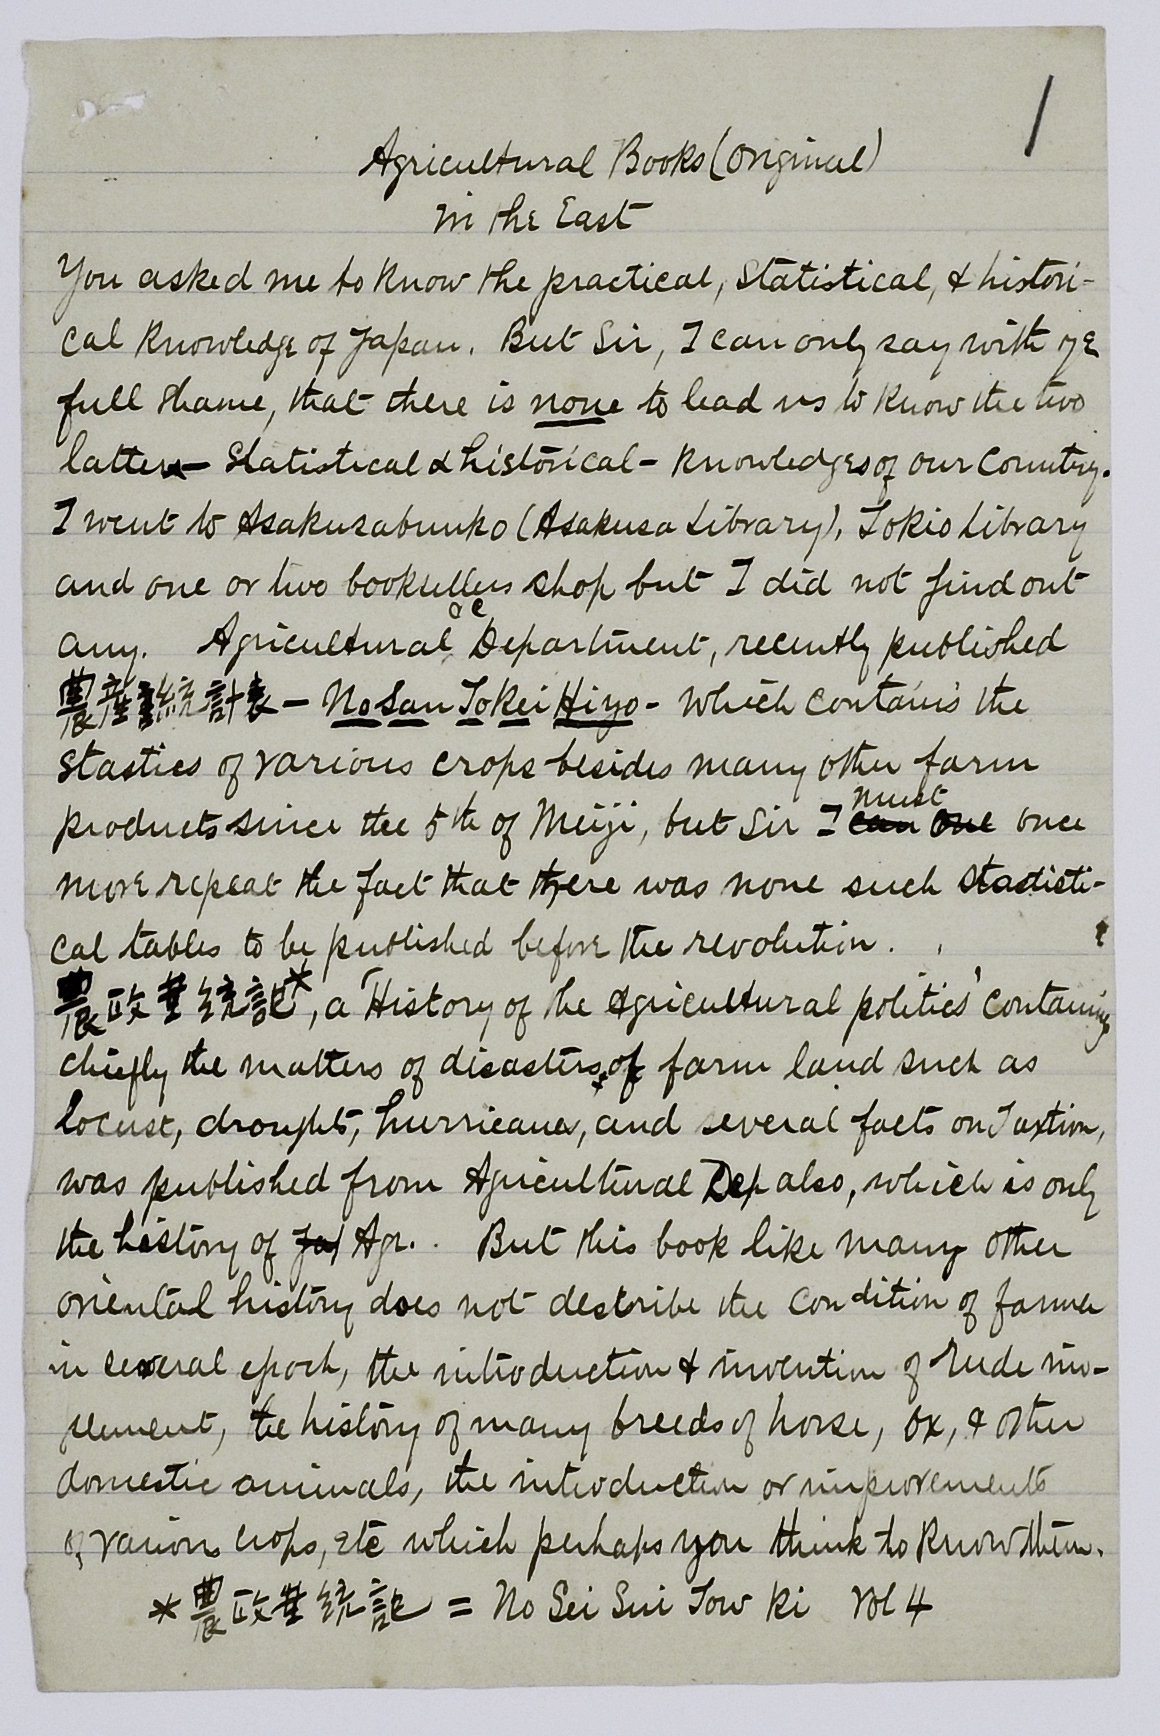 1
Agricultural Books (Original)
in the East
You asked me to know the practical, statistical, & histori-
cal knowledge of Japan. But Sir, I can only say with ye
full shame, that there is none to lead us to know the two
latter — statistical & historical — knowledges of our Country.
I went to Asakusabunko (Asakusa Library), Tokio Library
and one or two booksellers shop but I did not find out
any. Agricultural Department, recently published
農産統計表 — No San Tokei Hiyo - which contains the
stastics of various crops besides many other farm
products since the 5th of Meiji, but Sir I must once
more repeat the fact that there was none such stadisti-
cal tables to be published before the revolution.
農政垂統記*, a 'History of the Agricultural politics' containing
chiefly the matters of disasters of farm land such as
locust, drought, hurricane, and several facts on Taxtion,
was published from Agricultural Dep also, which is only
the history of Agr. But this book like many other
oriental history does not describe the condition of farmer
in several epoch, the introduction & invention of rude im-
plement, the history of many breeds of horse, ox, & other
domestic animals, the introduction or improvements
of various crops, etc which perhaps you think to know them.
* 農政垂統記 = No Sei Sui Tow Ki Vol 4